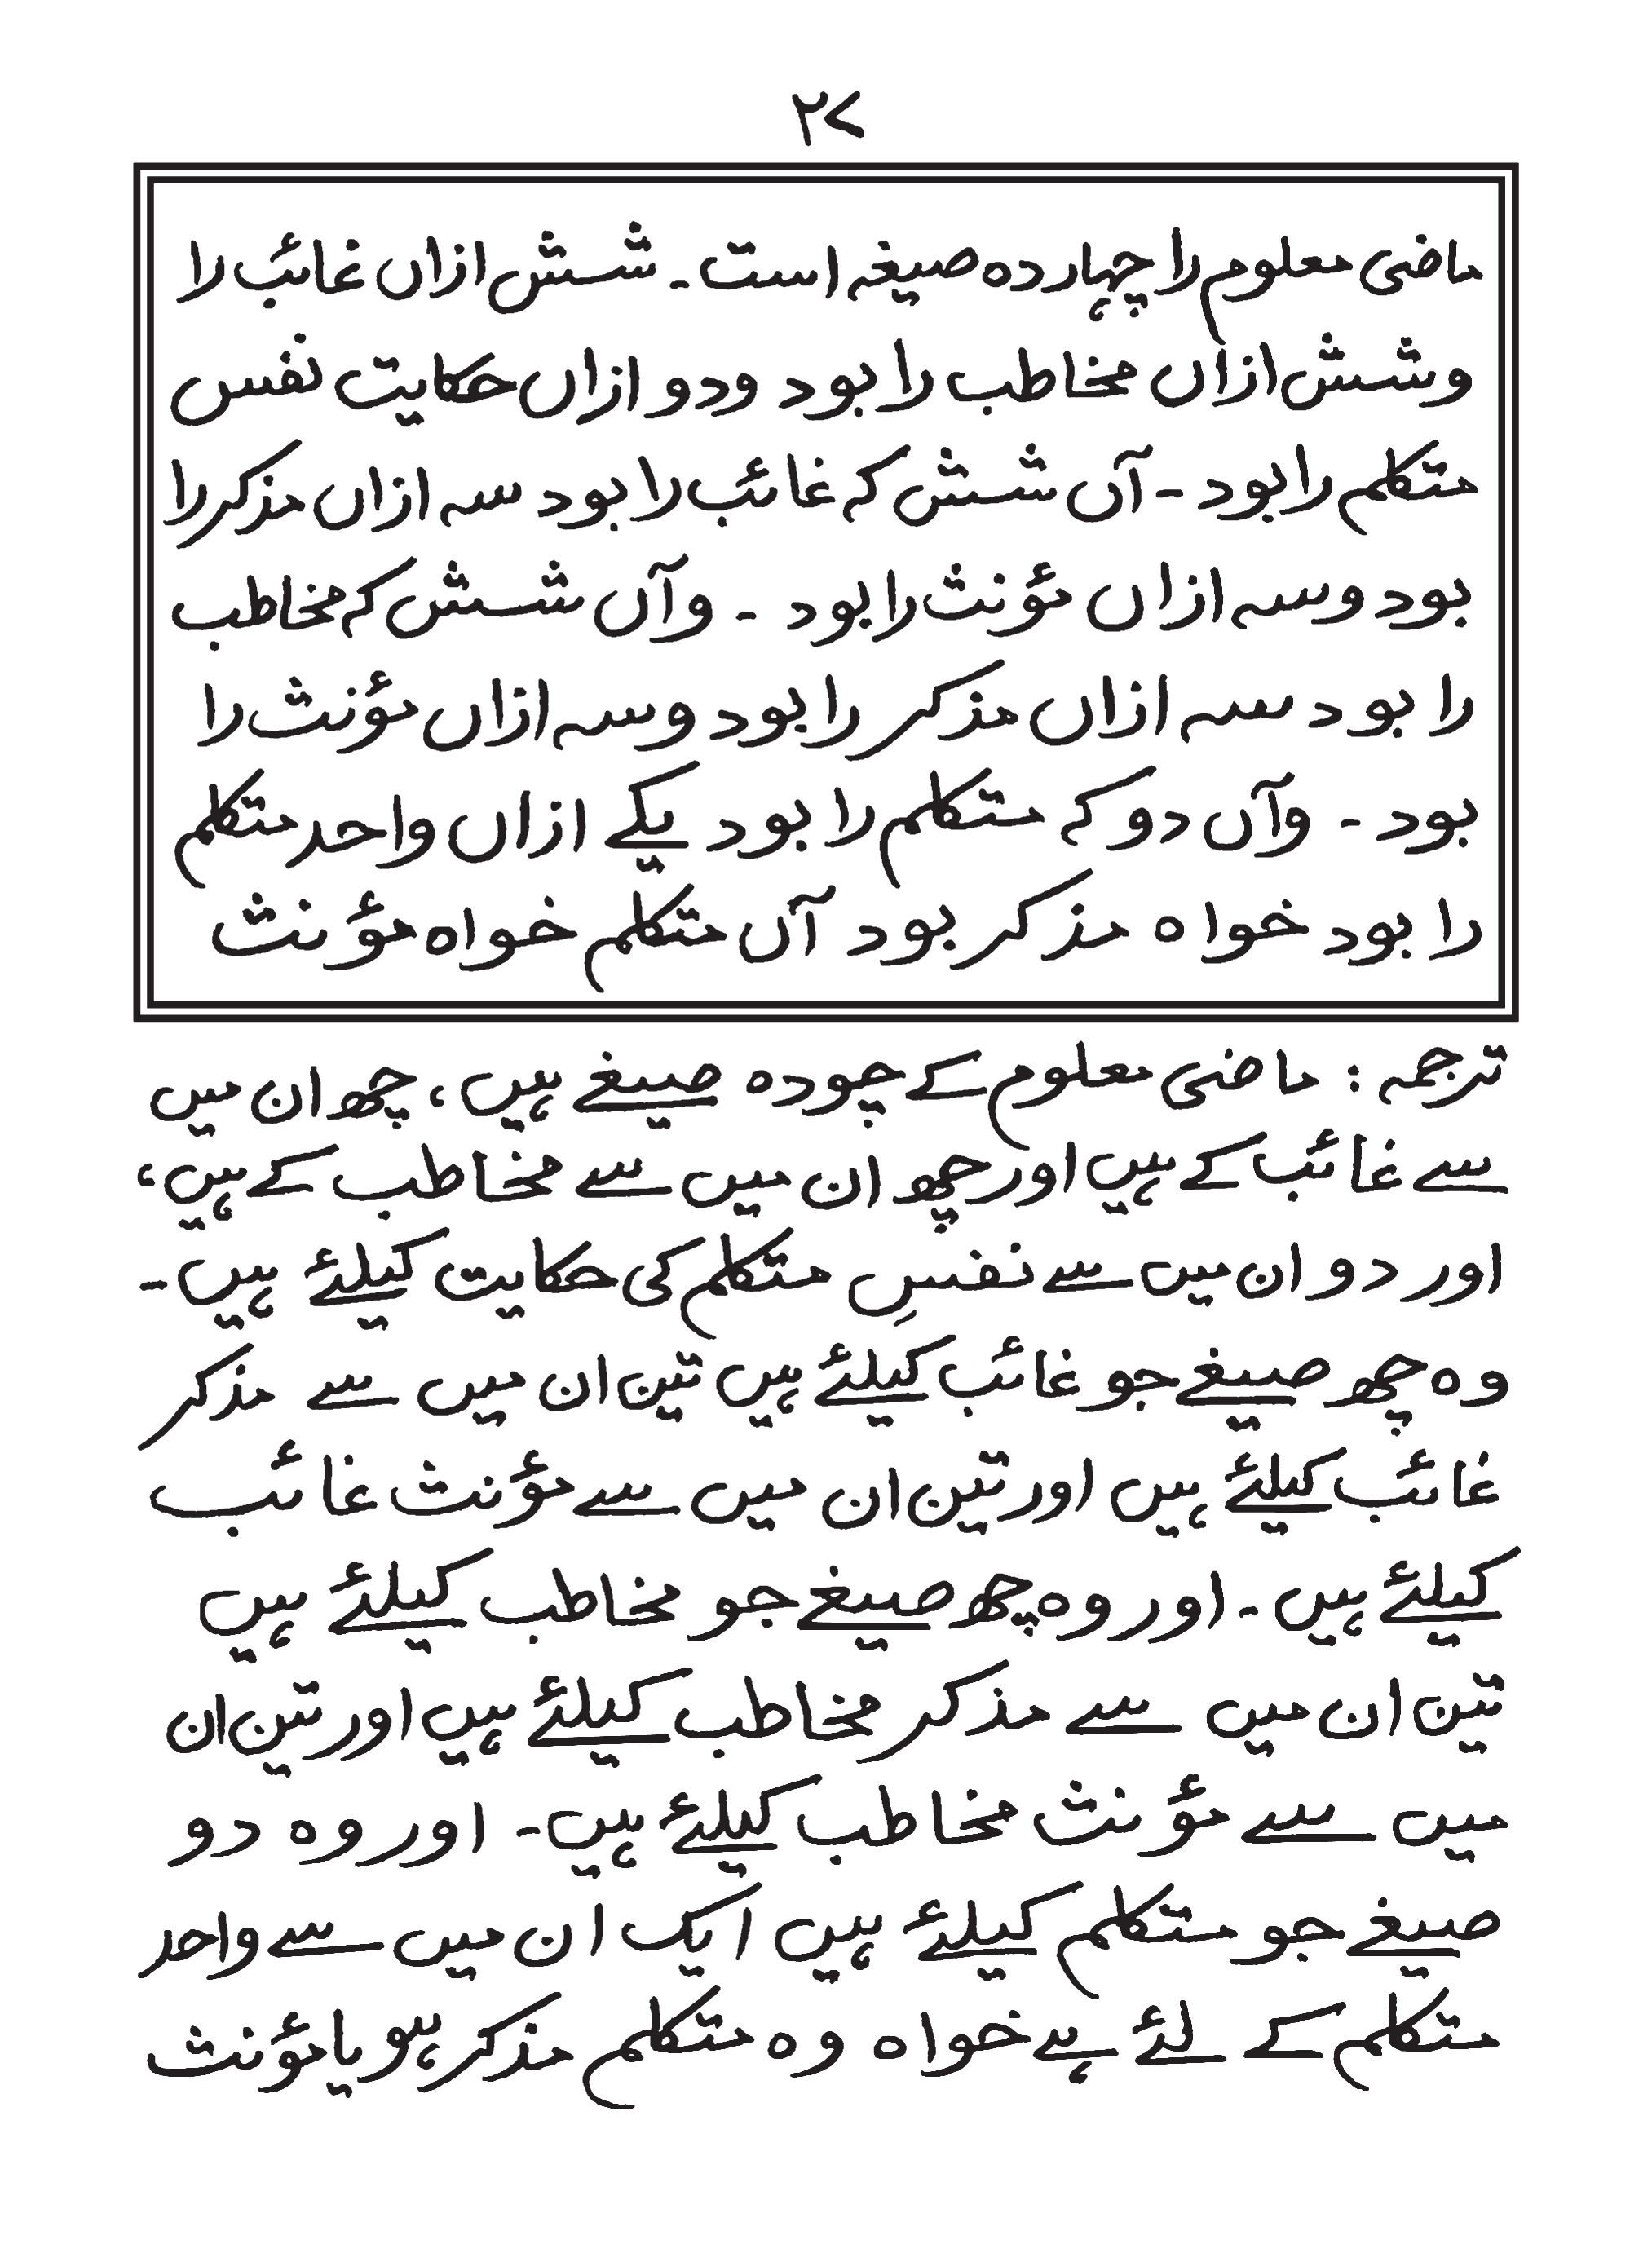 ۲۷
ماضی معلوم را چہار دہ صیغہ است۔ شش ازاں غائب را
وشش ازاں مخاطب را بود ودو ازاں حکایت نفس
متکلم را بود ۔ آں شش کہ غائب را بود سہ ازاں مذکر را
بود وسہ ازاں مؤنث را بود ۔ وآں شش کہ مخاطب
را بود سہ ازاں مذکر را بود وسہ ازاں مؤنث را
بود ۔ وآں دو کہ متکلم را بود یکے ازاں واحد متکلم
را بود خواہ مذکر بود آں متکلم خواہ مؤنث
ترجمہ : ماضی معلوم کے چودہ صیغے ہیں، چھ ان میں
سے غائب کے ہیں اور چھ ان میں سے مخاطب کے ہیں،
اور دو ان میں سے نفسِ متکلم کی حکایت کیلئے ہیں۔
وہ چھ صیغے جو غائب کیلئے ہیں تین ان میں سے مذکر
غائب کیلئے ہیں اور تین ان میں سے مؤنث غائب
کیلئے ہیں۔ اور وہ چھ صیغے جو مخاطب کیلئے ہیں
تین ان میں سے مذکر مخاطب کیلئے ہیں اور تین ان
میں سے مؤنث مخاطب کیلئے ہیں۔ اور وہ دو
صیغے جو متکلم کیلئے ہیں ایک ان میں سے واحد
متکلم کے لئے ہے خواہ وہ متکلم مذکر ہو یا مؤنث